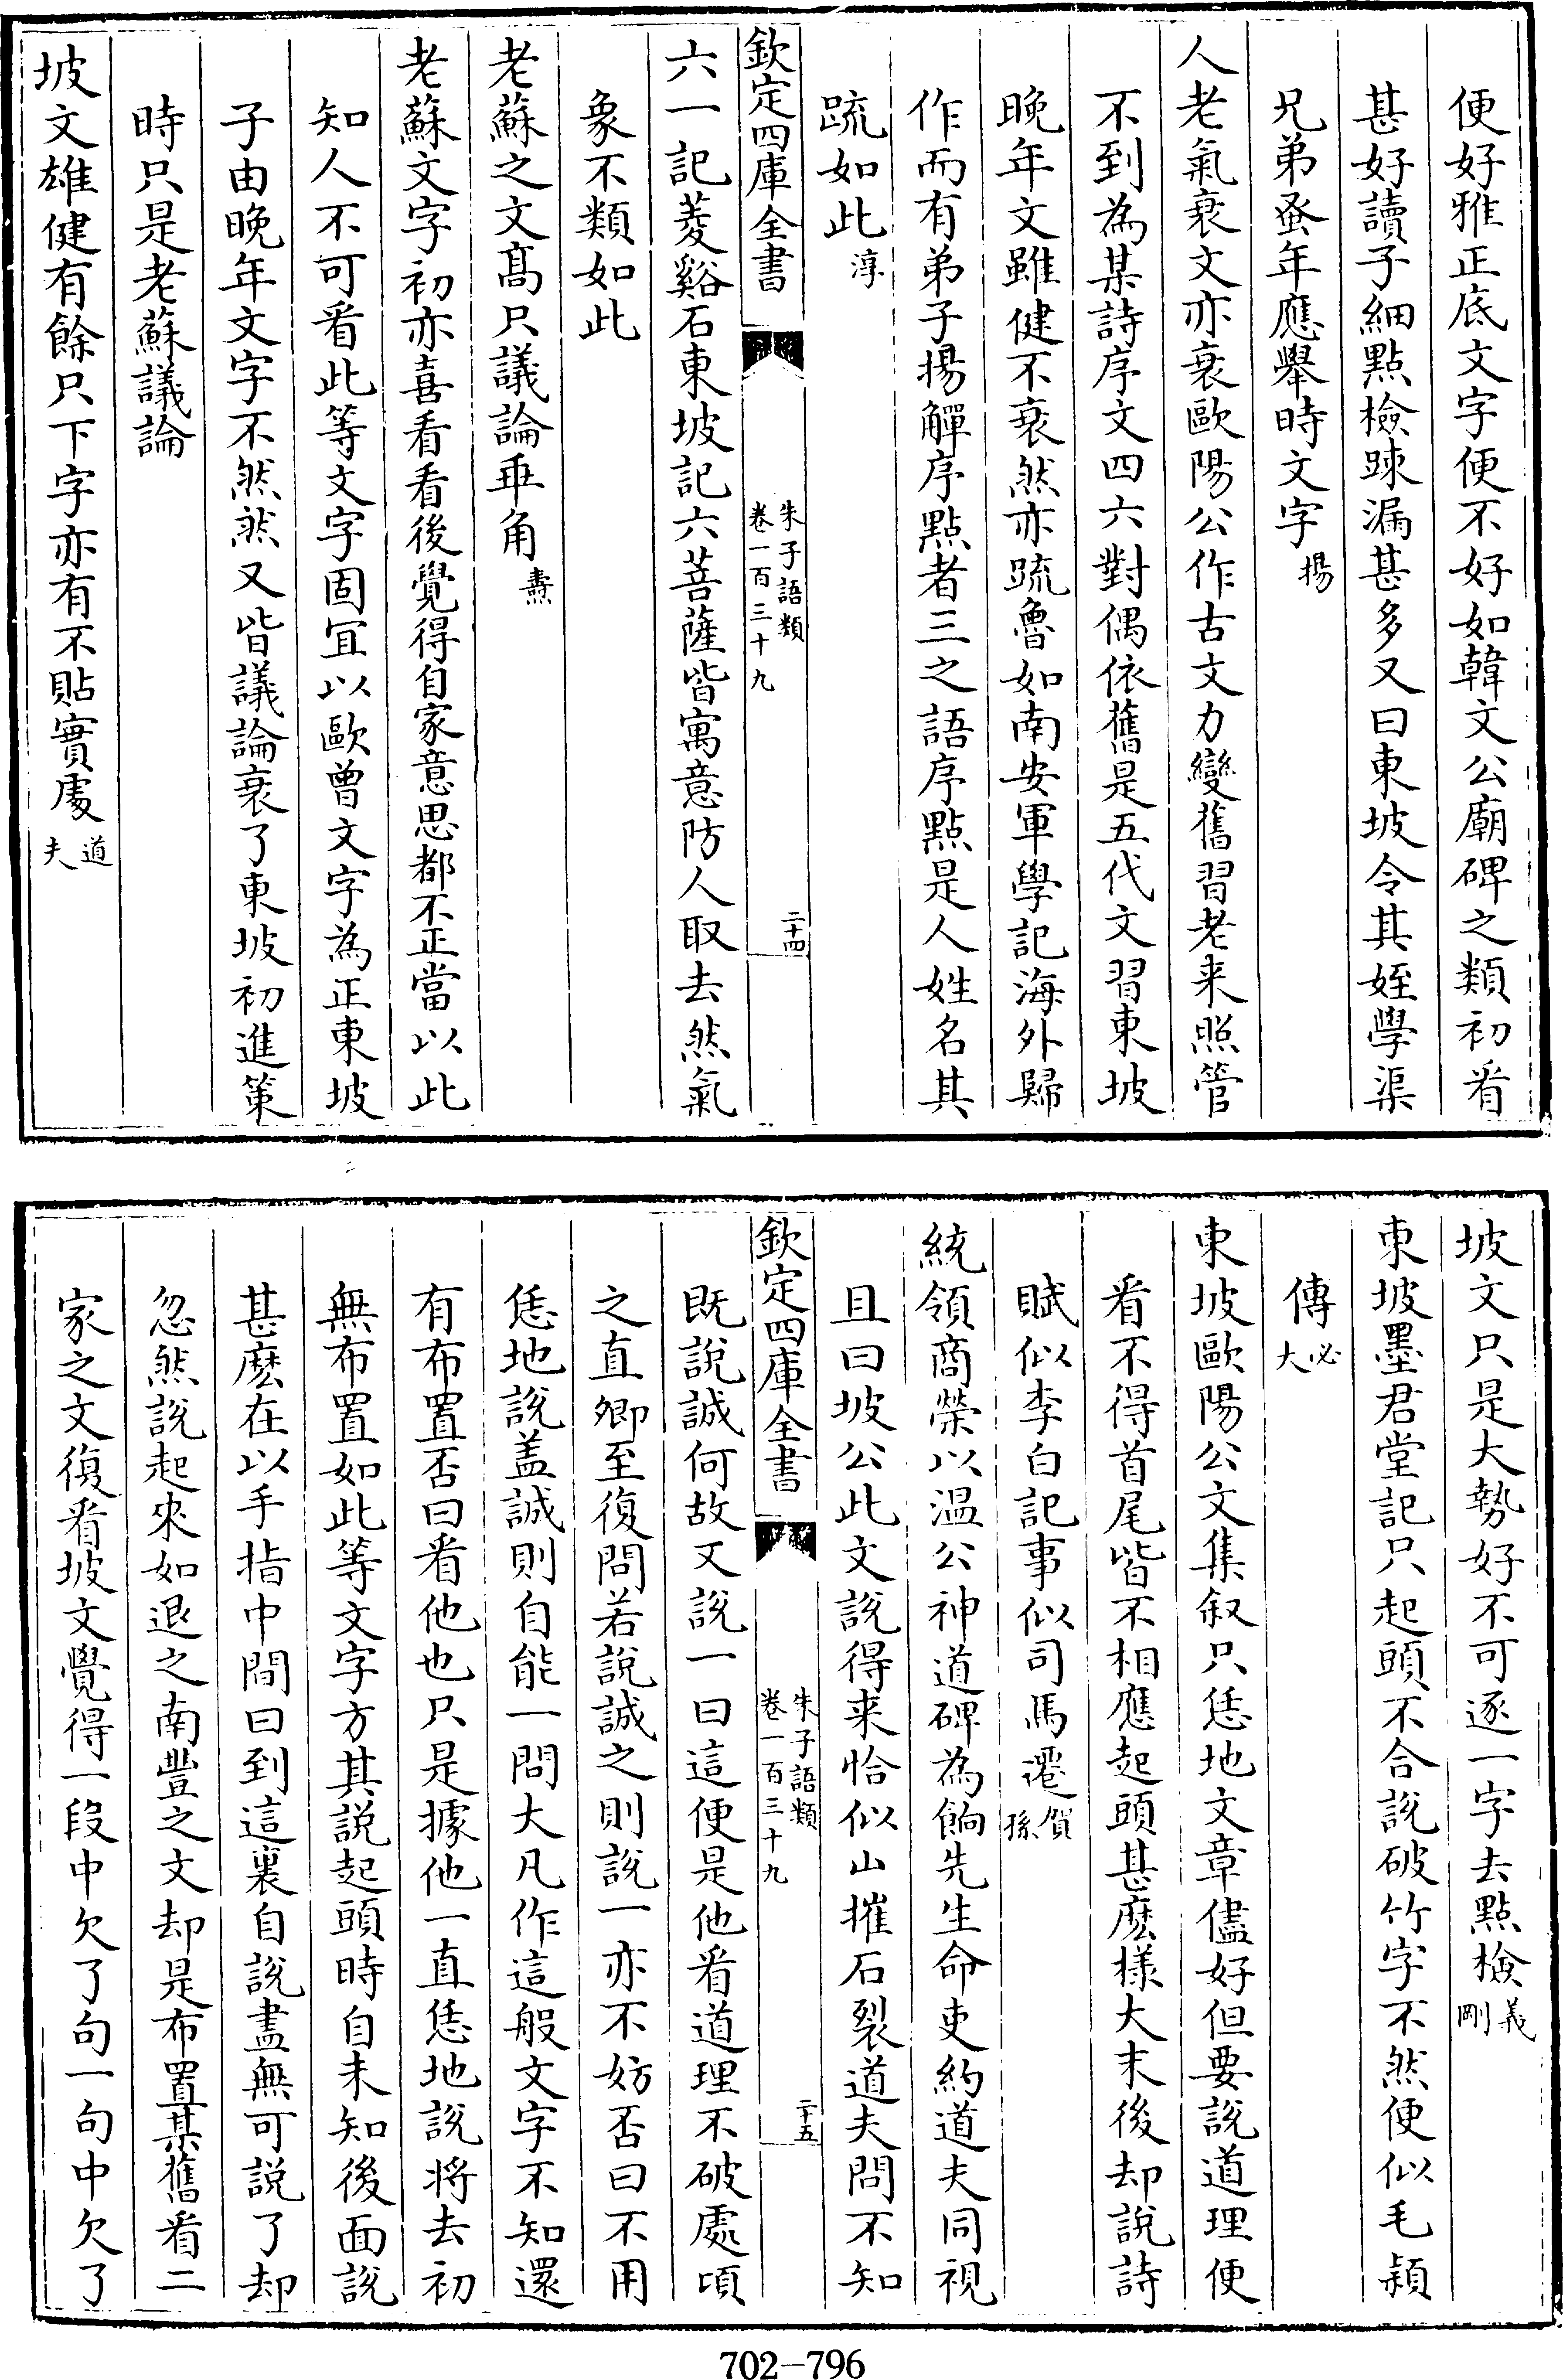 便好雅正底文字便不好如韓文公廟碑之類初看
甚好讀子細點檢踈漏甚多又曰東坡令其姪學渠
兄弟蚤年應舉時文字揚
人老氣衰文亦衰歐陽公作古文力變舊習老来照管
不到為某詩序文四六對偶依舊是五代文習東坡
晩年文雖健不衰然亦疏魯如南安軍學記海外歸
作而有弟子揚觶序點者三之語序點是人姓名其
疏如此淳
欽定四庫全書
朱子語類
卷一百三十九
二十四
六一記菱谿石東坡記六菩薩皆寓意防人取去然氣
象不類如此
老蘇之文髙只議論乖角燾
老蘇文字初亦喜看看後覺得自家意思都不正當以此
知人不可看此等文字固宜以歐曾文字為正東坡
子由晩年文字不然然又皆議論衰了東坡初進策
時只是老蘇議論
坡文雄健有餘只下字亦有不貼實處道夫
坡文只是大勢好不可逐一字去點檢義剛
東坡墨君堂記只起頭不合說破竹字不然便似毛穎
傳必大
東坡歐陽公文集叙只恁地文章儘好但要說道理便
看不得首尾皆不相應起頭甚麽様大末後却說詩
賦似李白記事似司馬遷賀孫
統領商榮以温公神道碑為餉先生命吏約道夫同視
且曰坡公此文說得来恰似山摧石裂道夫問不知
欽定四庫全書
朱子語類
卷一百三十九
二十五
既說誠何故又說一曰這便是他看道理不破處頃
之直卿至復問若說誠之則說一亦不妨否曰不用
恁地說盖誠則自能一問大凡作這般文字不知還
有布置否曰看他也只是據他一直恁地說将去初
無布置如此等文字方其說起頭時自未知後面說
甚麽在以手指中間曰到這裏自說盡無可說了却
忽然說起來如退之南豐之文却是布置某舊看二
家之文復看坡文覺得一段中欠了句一句中欠了
702-796